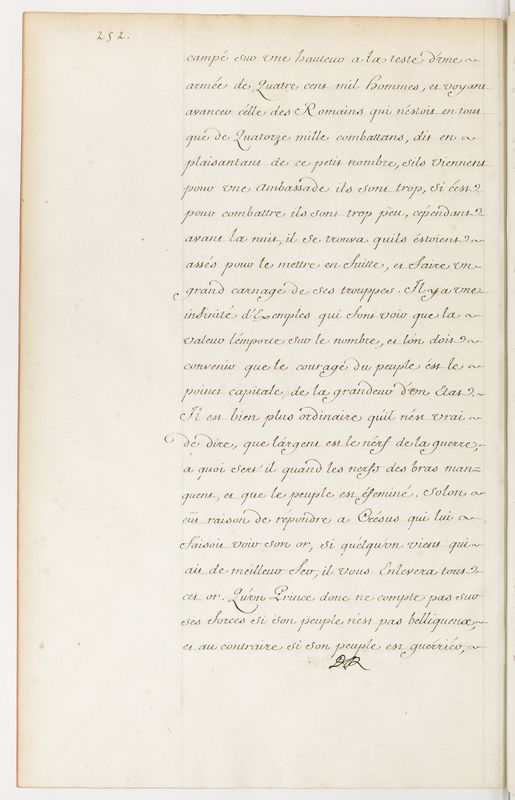 252.
campé sur vne hauteur a la teste d'vne
armée de Quatre cent mil hommes, et voyant
avancer célle des Romains qui n'estoit en tout
que de Quatorze mille combattans, dit en
plaisantant de ce petit nombre, s'ils viennent
pour vne ambassade ils sont trop, si c'est
pour combattre ils sont trop peu, cépendant
avant la nuit, il se trouva qu'ils éstoient
assés pour le mettre en fuitte, et faire vn
grand carnage de ses trouppes. Il y a vne
infinité d'Exemples qui font voir que la
valeur l'émporte sur le nombre, et l'on doit
convenir que le courage du peuple ést le
point capitale de la grandeur d'vn Etat.
Il est bien plus ordinaire qu'il n'ést vrai
de dire, que l'argent est le nérf de la guerre,
a quoi sert'il quand les nerfs des bras man=
quent, et que le peuple est éfeminé. Solon
eût raison de répondre a Crésus qui lui
faisoit voir son or, si quélqu'vn vient qui
ait de meilleur fer, il vous Enlevera tout
cet or. Qu'vn Prince donc ne compte pas sur
ses forces si son peuple n'est pas belliqueux,
et au contraire si son peuple est guérriér,